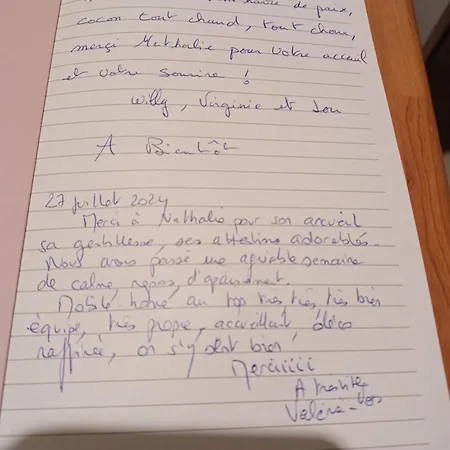 de paix,
cocon tout chaud, tout chou,
merci Nathalie pour votre accueil
et votre sourire !
Willy, Virginie et Lou
A Bientôt
27 Juillet 2024
Merci à Nathalie pour son accueil
sa gentillesse, ses attentions adorables.
Nous avons passé une agréable semaine
de calme, repos, d'apaisement.
Mobile home au top très très, très bien
équipé, très propre, accueillant déco
raffinée, on s'y sent bien !
Merciiiiii
A
Valérie